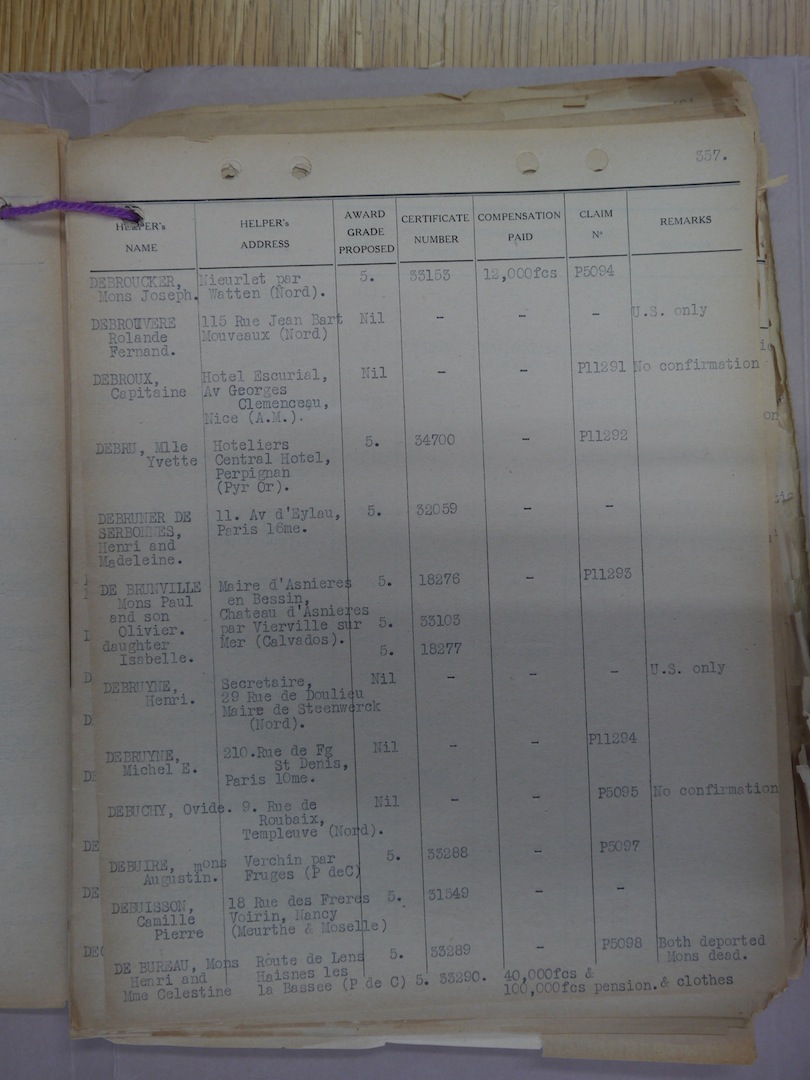 357.
HELPER's NAME | HELPER's ADDRESS | AWARD GRADE PROPOSED | CERTIFICATE NUMBER | COMPENSATION PAID | CLAIM Nº | REMARKS
DEBROUCKER, | Nieurlet par | 5. | 33153 | 12,000fcs | P5094
Mons Joseph. | Watten (Nord).
DEBROUVERE | 115 Rue Jean Bart | Nil | - | - | - | U.S. only
Rolande | Mouveaux (Nord)
Fernand.
DEBROUX, | Hotel Escurial, | Nil | - | - | P11291 | No confirmation
Capitaine | Av Georges
Clemenceau,
Nice (A.M.).
DEBRU, Mlle | Hoteliers | 5. | 34700 | - | P11292
Yvette | Central Hotel,
Perpignan
(Pyr Or).
DEBRUNER DE | 11. Av d'Eylau, | 5. | 32059 | - | -
SERBONNES, | Paris 16me.
Henri and
Madeleine.
DE BRUNVILLE | Maire d'Asnieres | 5. | 18276 | - | P11293
Mons Paul | en Bessin,
and son | Chateau d'Asnieres
Olivier. | par Vierville sur | 5. | 33103
daughter | Mer (Calvados).
Isabelle. | 5. | 18277
DEBRUYNE, | Secretaire, | Nil | - | - | - | U.S. only
Henri. | 29 Rue de Doulieu
Maire de Steenwerck
(Nord).
DEBRUYNE, | 210.Rue de Fg | Nil | - | - | P11294
Michel E. | St Denis,
Paris 10me.
DEBUCHY, Ovide. | 9. Rue de | Nil | - | - | P5095 | No confirmation
Roubaix,
Templeuve (Nord).
DEBUIRE, mons | Verchin par | 5. | 33288 | - | P5097
Augustin. | Fruges (P deC)
DEBUISSON, | 18 Rue des Freres | 5. | 31549 | - | -
Camille | Voirin, Nancy
Pierre | (Meurthe & Moselle)
DE BUREAU, Mons | Route de Lens | 5. | 33289 | - | P5098 | Both deported
Henri and | Haisnes les | Mons dead.
Mme Celestine | la Bassee (P de C) | 5. | 33290. | 40,000fcs &
100,000fcs pension.& clothes